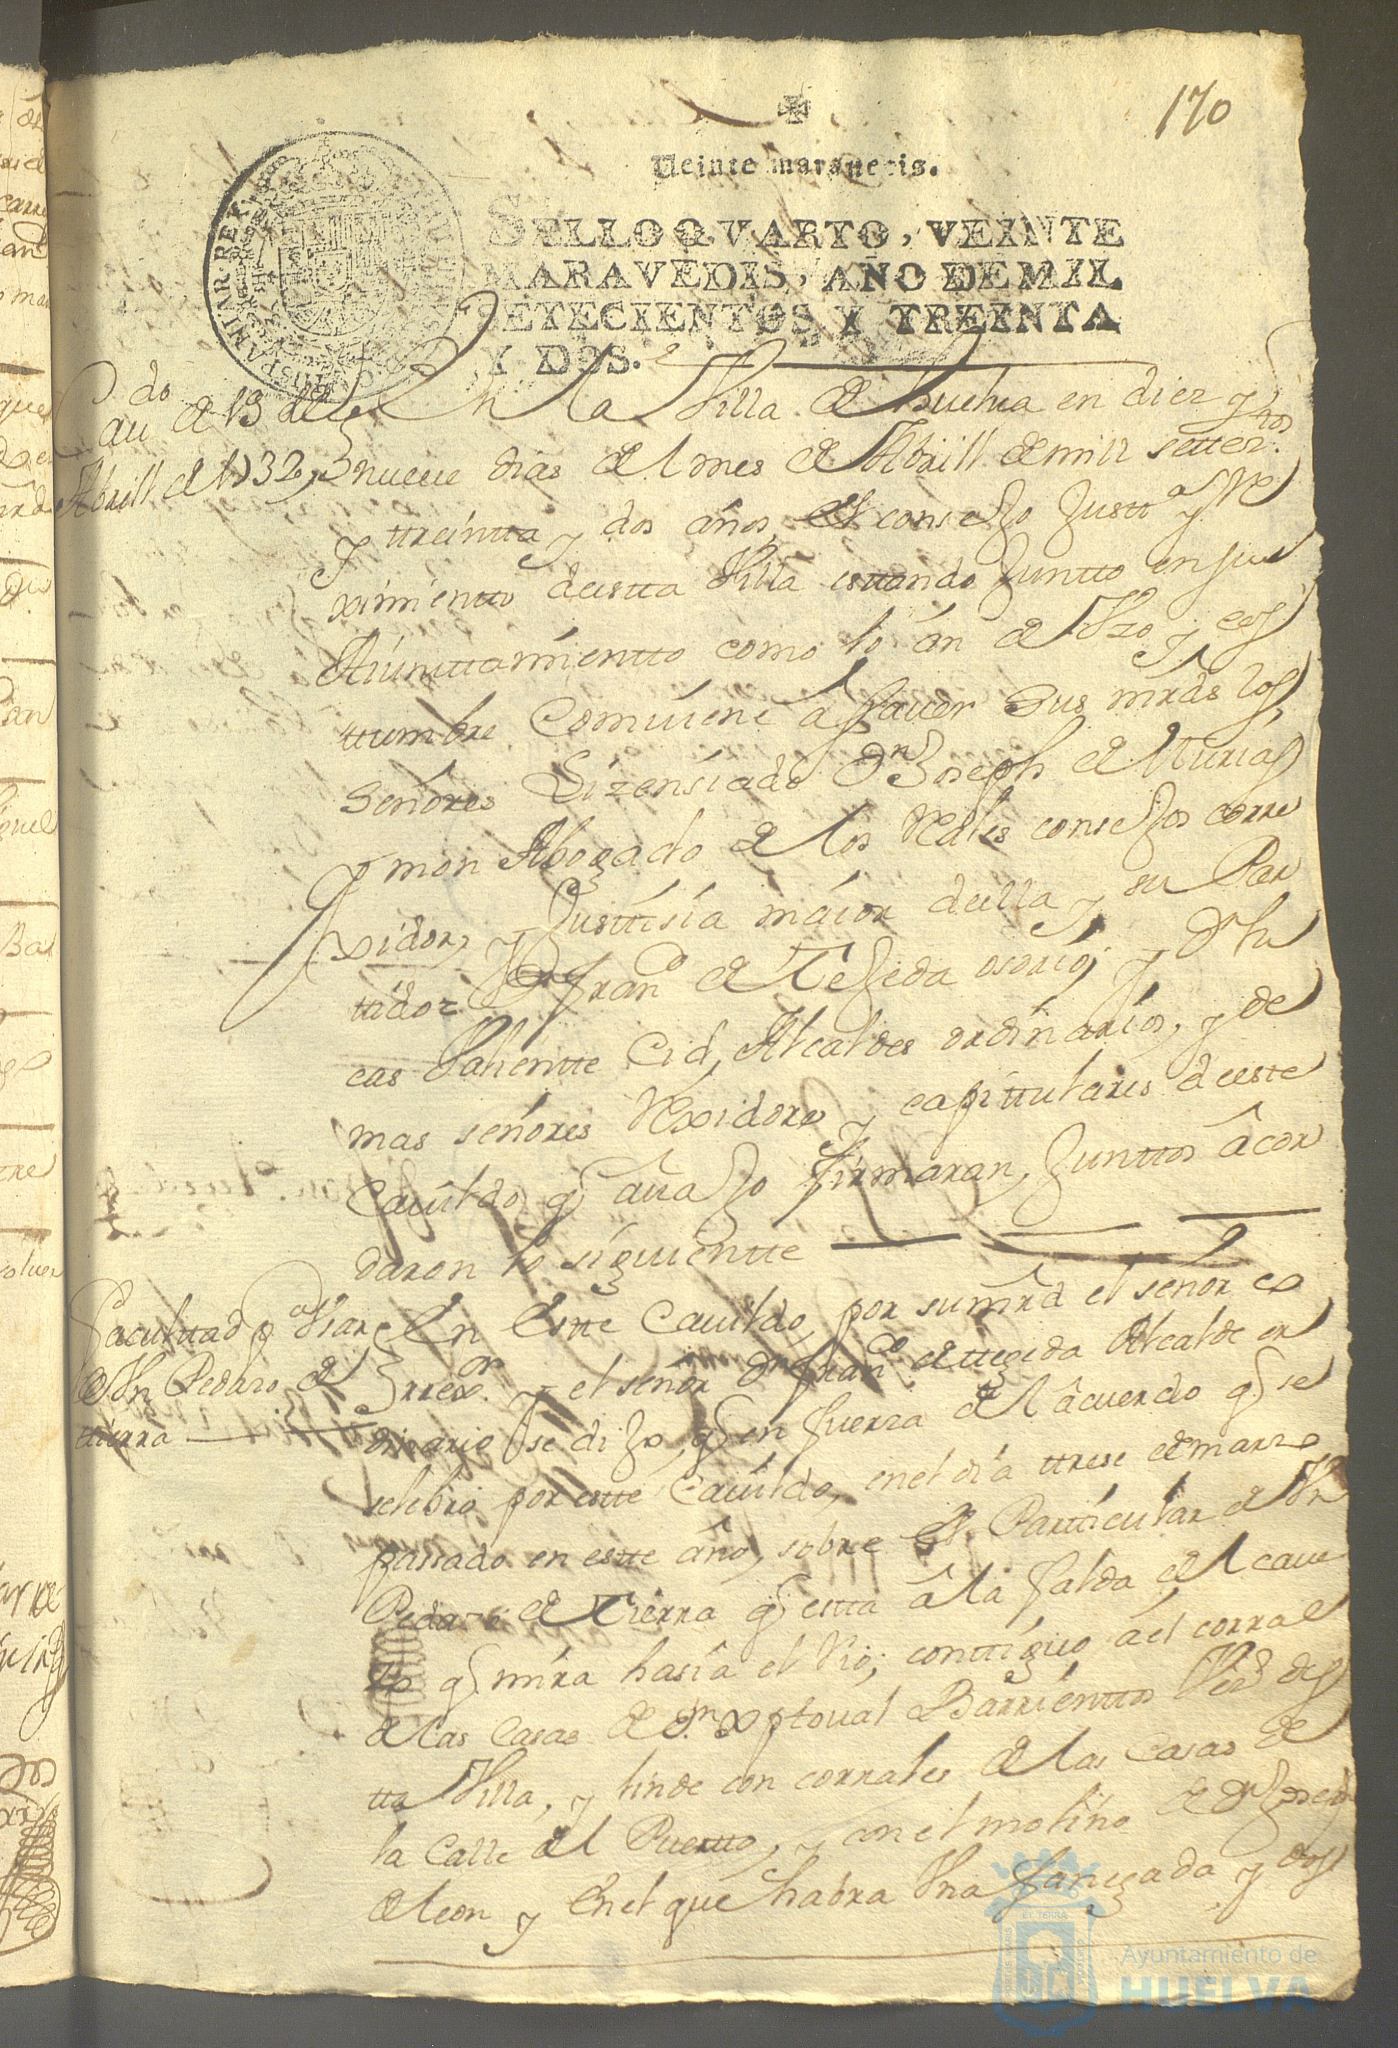 170
Veinte maravedis.
SELLO QVARTO, VEINTE
MARAVEDIS, AÑO DE MIL
SETECIENTOS Y TREINTA
Y DOS.
Cau.do de 19 de
Abrill de 1732
En la Villa de Huelua en diez y
nueue dias del mes de Abrill de mill settez.tos
y ttreintta y dos años, el consejo Justt.a y Re
ximientto destta Villa esttando Juntto en su
Aiunttamientto como lo ân de Vzo y cos
ttumbre Comuiene â sauer sus mrds los
señores Lizensiado Dn Joseph de Murias
y mon Abogado de los Reales consejos corre
xidor, y Justtisia maior della y su Par
tidor Dn Fran.co de Tejeda osorio, y Dn Lu
cas Valientte Cid, Alcaldes ordinarios, y de
mas señores Rexidores y capittulares deeste
Cauildo q auajo firmaran, Junttos âcor
daron lo siguientte
Facultad pa
Vn Pedaso de
ttierra
En Estte Cauildo, por su mrd el señor co
rrex.or y el señor Dn Fran.co de ttegeda Alcalde or
dinario se dijo, q en fuerza del âcuerdo q se
selebro por estte Cauildo, en el dia ttrese de marzo
passado en estte año, sobre el Particular de Vn
Pedazo de Tierra q estta â la falda del caue
zo q mira hasia el Rio; conttiguo a el corral
de las casas de Dn Xptoual Barrienttos Vez.o des
tta Villa, y linde con corrales de las Casas de
la Calle del Puertto, y con el molino de Dn Joseph
de leon y En el que habra Vna fanegada y dos
EL TERRA
Ayuntamiento de
HUELVA